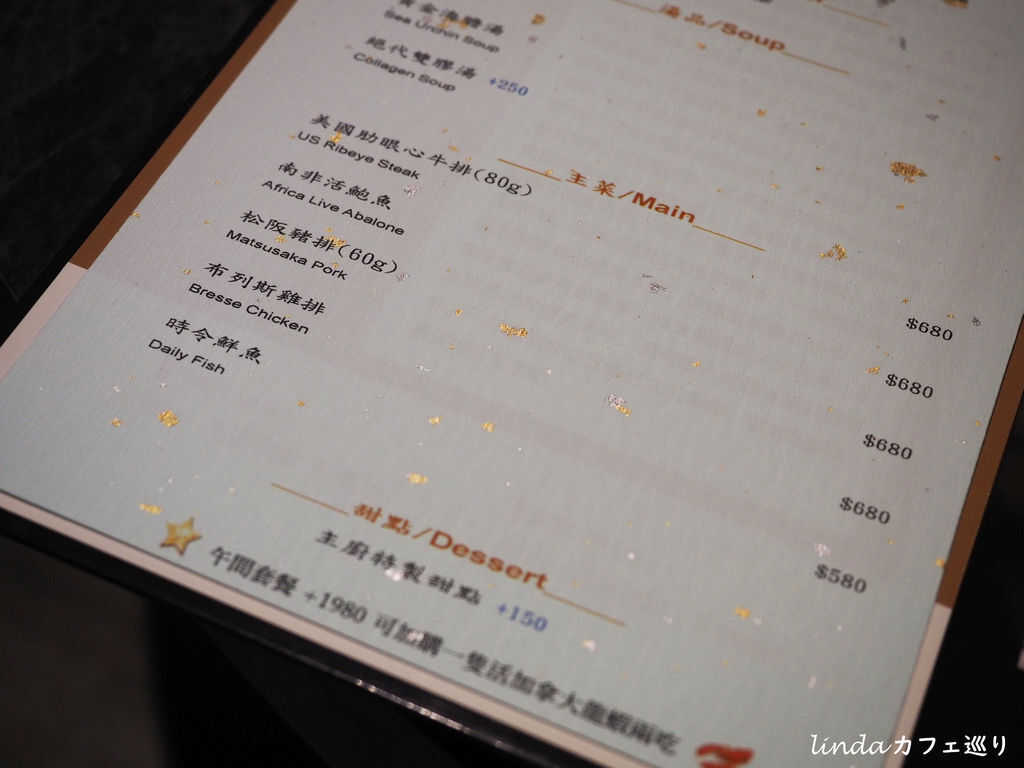 湯品/Soup
Sea Urchin Soup
絕代雙膠湯 +250
Collagen Soup
主菜/Main
美國肋眼心牛排(80g) $680
US Ribeye Steak
南非活鮑魚 $680
Africa Live Abalone
松阪豬排(60g) $680
Matsusaka Pork
布列斯雞排 $680
Bresse Chicken
時令鮮魚 $580
Daily Fish
甜點/Dessert
主廚特製甜點 +150
午間套餐 +1980 可加購一隻活加拿大龍蝦兩吃
lindaカフェ巡り